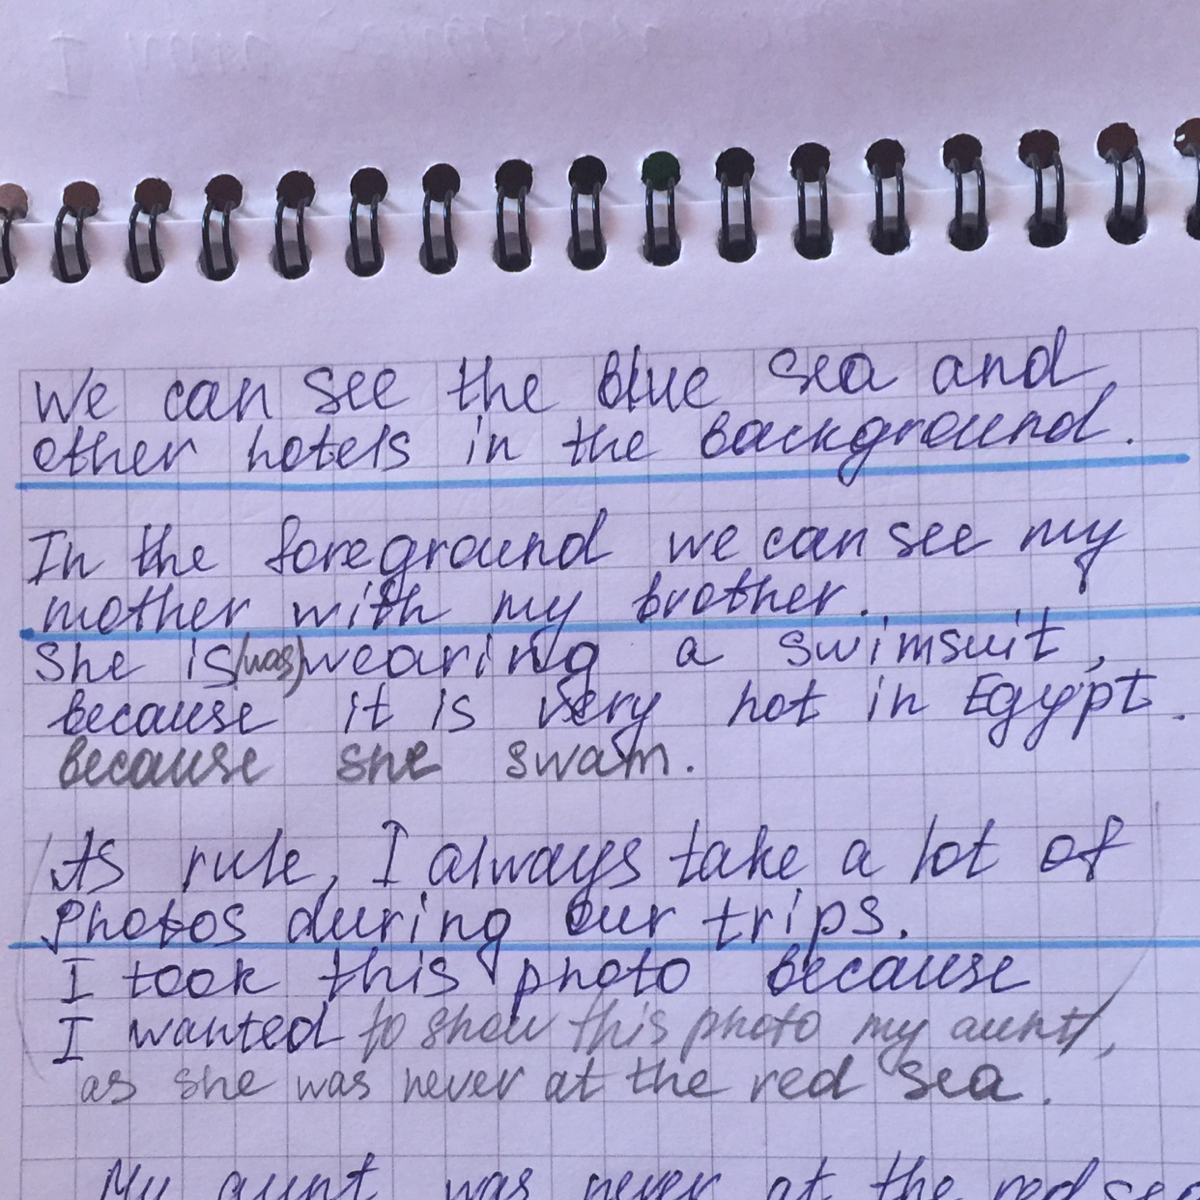 We can see the blue sea and
other hotels in the background.
In the foreground we can see my
mother with my brother.
She is (was) wearing a swimsuit,
because it is very hot in Egypt.
because she swam.
As rule, I always take a lot of
photos during our trips.
I took this photo because
I wanted to show this photo my aunt,
as she was never at the red sea.
My aunt was never at the red sea